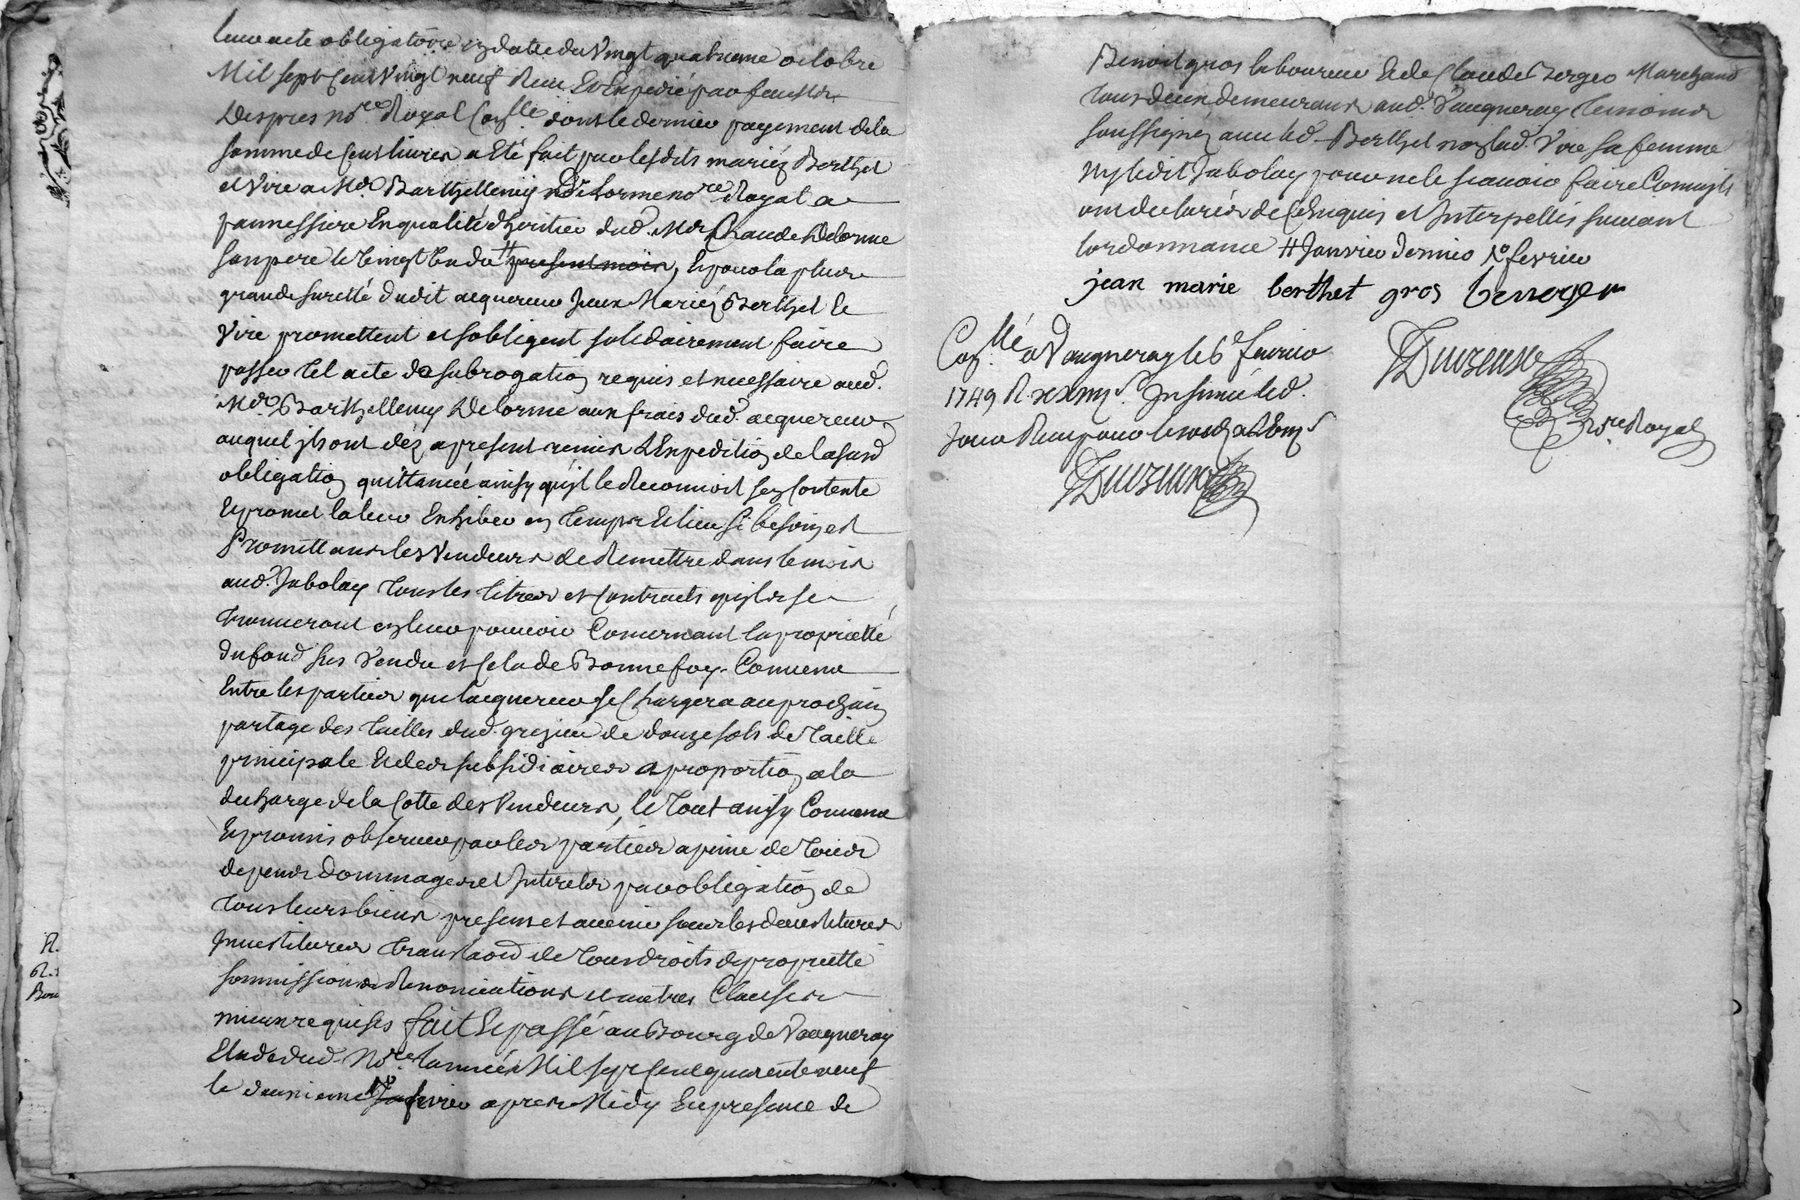 leur acte obligatoire en datte du vingt quatrieme octobre
Mil sept cent vingt neuf Receu Et Expedié par feu Me
Despres nore Royal Con.lle dont le dernier payement de la
somme de Cent livres a Eté fait par lesdits mariéz Berthet
et Vire a Me Barthellemy Delorme nore Royal a
pannessiere En qualité d'heritier dud. Me Claude Delorme
son pere le vingt un du # present mois, Et pour la plus
grande suretté dudit acquereur Iceux Mariéz Berthet et
Vire promettent et sobligent solidairement faire
passer tel acte de subrogation requis et necessaire aud.
Me Barthellemy Delorme aux frais dud. acquereur
auquel ils ont déz a present remis L'Expedition de lasusd
obligation quittancée ainsy qu'il le Reconnoit sen Contente
Et promet la leur Exhiber en temps Et lieu si besoin est
Promettans les vendeurs de Remettre dans le mois
aud. Jabolay tous les titres et contracts quils se
trouveront en leur pouvoir Concernant la proprietté
du fond sus vendu et cela de Bonne foy. Convenu
Entre les parties que lacquereur se Chargera au prochain
partage des tailles dud. grezieu de douze sols de taille
principale Et des subsidiaires a proportion a la
decharge de la Cotte des vendeurs, le tout ainsy Convenu
Et promis observer par les parties a peine de tous
depens dommages et Interets par obligation de
tous leurs biens presens et avenir sous les devestitures
Investitures translaon de tous droits de proprietté
soumissions Renonciations et autres Clauses
mieux requises fait Et passé au Bourg de Vaugneray
Etude dud. Nore lannée Mil sept Cent quarente neuf
le deuxieme fevrier apres Midy En presence de
Benoit gros laboureur Et de Claude Berger Marchand
tous deux demeurans aud. Vaugneray temoins
soussignéz avec led. Berthet non lad. Vire sa femme
Ny ledit Jabolay pour ne le scavoir faire Comm'ils
ont declarés de ce Enquis et Interpellés suivant
lordonnance # Janvier dernier fevrier
jean marie berthet gros berger
Con.llé a Vaugneray le 6e fevrier
1749 R. Insinué led.
Jour Receu pour le
Nore Royal